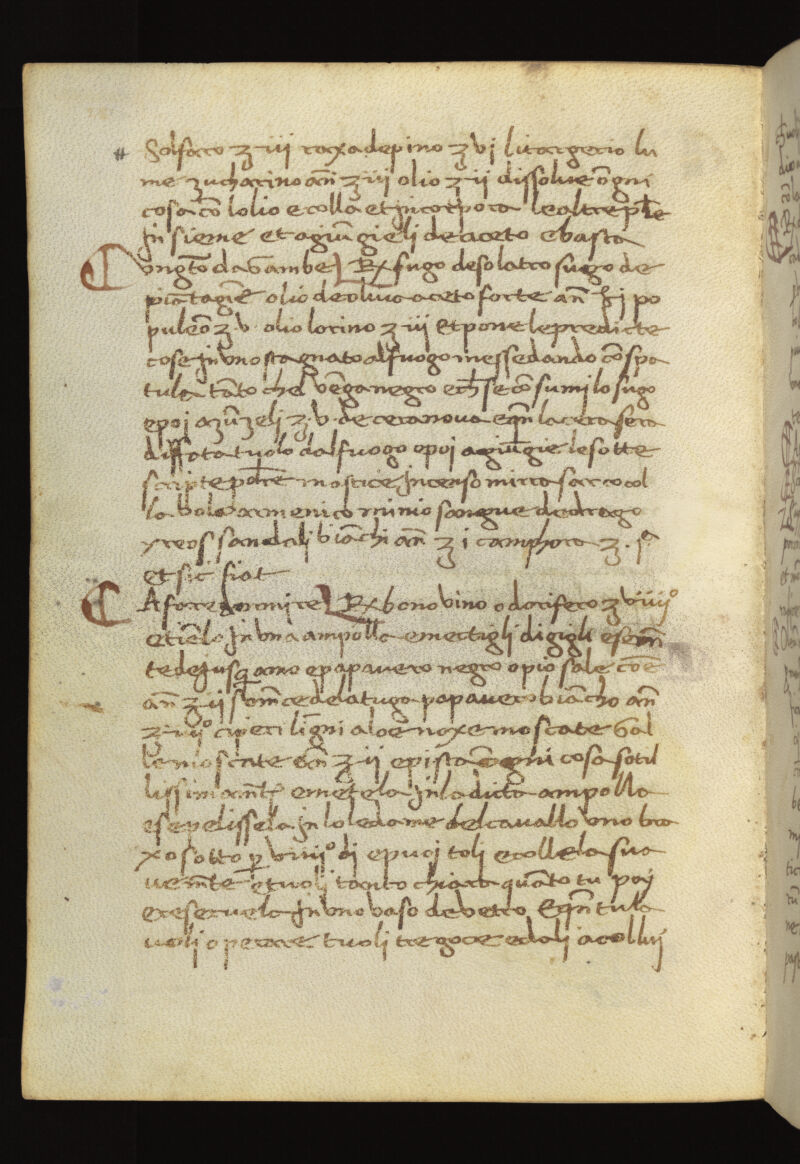 Solfaro ʒ iij raxa de pino ʒ vj litargerio lu
me zucharino an̄ ʒ iij olio ʒ ij dissolve ōgni
cosa cō lolio e colla et incorpora le altre polve
in sieme et agiūgieli de aceto e basta
Ungto da gambe Rx sugo de solatro sugo de
piātagine olio de oliva aceto forte an̄ ℥ j po
puleō ʒ v. olio lorino ʒ iij Et pone le predicte
cose in uno stagnato al fuogo messedando cō spa
tula tāto chel vēga negro e che se cōsumi lo sugo
e poi azūzeli ʒ. v. de cera nova e qn̄ la cera sera
diffata tuolo dal fuogo e poi agiūgie le sotte
scripte polvere mastice incenso mirra sarcocol
la bolo armenico minio sangue de drago
yreos sandali biāchi an̄ ʒ i camphora ʒ. ſ
et sic fiat
A fare dormire Rx bono vino odorifero ʒ viiijº
e tiēlo in una ampolla e mectigli di gigli e semē
te de jusquamo e papavero negro opio sale cōe
an̄ ʒ ij somēce de latuga papavero biācho an̄
ʒ iiijº ciperi ligni aloe noxe moscate Gal
le moscate an̄ ʒ ij e pista ōgni cosa sotil
lissimamte e metela in la dicta ampolla
e sepelissela in lo ledame del cavallo uno bra
xo sotto per viiijº di e puoj toli e collela sua
vemēte e tuoli tanto chiara quāto tu poj
e reservela in uno vaso de vetro E qn̄ tu la
voli operare tuoli tre goze e dali a collui